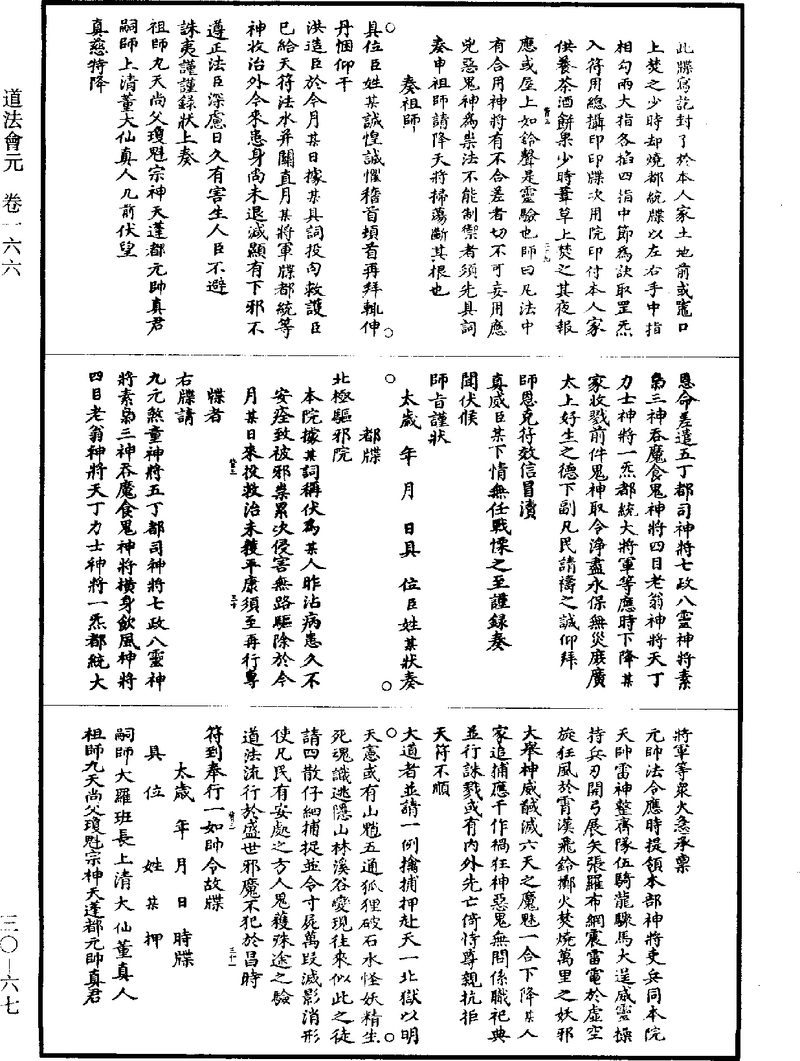 道法會元　卷一六六
三〇—六七
此牒寫訖封了於本人家土地前或竈口
上焚之少時却燒都統牒以左右手中指
相勾兩大指各掐四指中節為訣取罡炁
入符用總攝印印牒次用院印付本人家
供養茶酒餅果少時藁草上焚之其夜報
應或屋上如鈴聲是靈驗也師曰凡法中
有合用神將有不合差者切不可妄用應
兇惡鬼神為祟法不能制禦者須先具詞
奏申祖師請降天將掃蕩斷其根也
奏祖師
具位臣姓某誠惶誠懼稽首頓首再拜輒伸
丹悃仰干
洪造臣於今月某日據某具詞投向救護臣
已給天符法水并關直月某將軍牒都統等
神收治外今來患身尚未退減顯有下邪不
遵正法臣深慮日久有害生人臣不避
誅夷謹謹錄狀上奏
祖師九天尚父瓊魁宗神天蓬都元帥真君
嗣師上清董大仙真人几前伏望
真慈特降
恩命差遣五丁都司神將七政八靈神將素
梟三神吞魔食鬼神將四目老翁神將天丁
力士神將一炁都統大將軍等應時下降某
家收戮前件鬼神取令淨盡永保無災庶廣
太上好生之德下副凡民請禱之誠仰拜
師恩克符效信冒瀆
真威臣某下情無任戰慄之至謹錄奏
聞伏候
師旨謹狀
太歲　年　月　日具　位臣姓某狀奏
都牒
北極驅邪院
本院據某詞稱伏為某人昨沾病患久不
安痊致被邪祟累次侵害無路驅除於今
月某日來投救治未獲平康須至再行專
牒者
右牒請
九元煞童神將五丁都司神將七政八靈神
將素梟三神吞魔食鬼神將橫身飲風神將
四目老翁神將天丁力士神將一炁都統大
將軍等眾火急承稟
元帥法令應時提領本部神將吏兵同本院
天帥雷神整齊隊伍騎龍驟馬大逞威靈操
持兵刃開弓展矢張羅布網震雷電於虛空
旋狂風於霄漢飛鈴擲火焚燒萬里之妖邪
大舉神威馘滅六天之魔魅一合下降某人
家追捕應干作禍狂神惡鬼無問係職祀典
並行誅戮或有內外先亡倚恃尊親抗拒
天符不順
大道者並請一例擒捕押赴天一北獄以明
天憲或有山魈五通狐狸破石水怪妖精生
死魂識逃隱山林溪谷變現往來似此之徒
請四散仔細捕捉並令寸屍萬段滅影消形
使凡民有安處之方人鬼獲殊途之驗
道法流行於盛世邪魔不犯於昌時
符到奉行一如帥令故牒
太歲　年　月　日　時牒
具　位　姓　某　押
嗣師大羅班長上清大仙董真人
祖師九天尚父瓊魁宗神天蓬都元帥真君